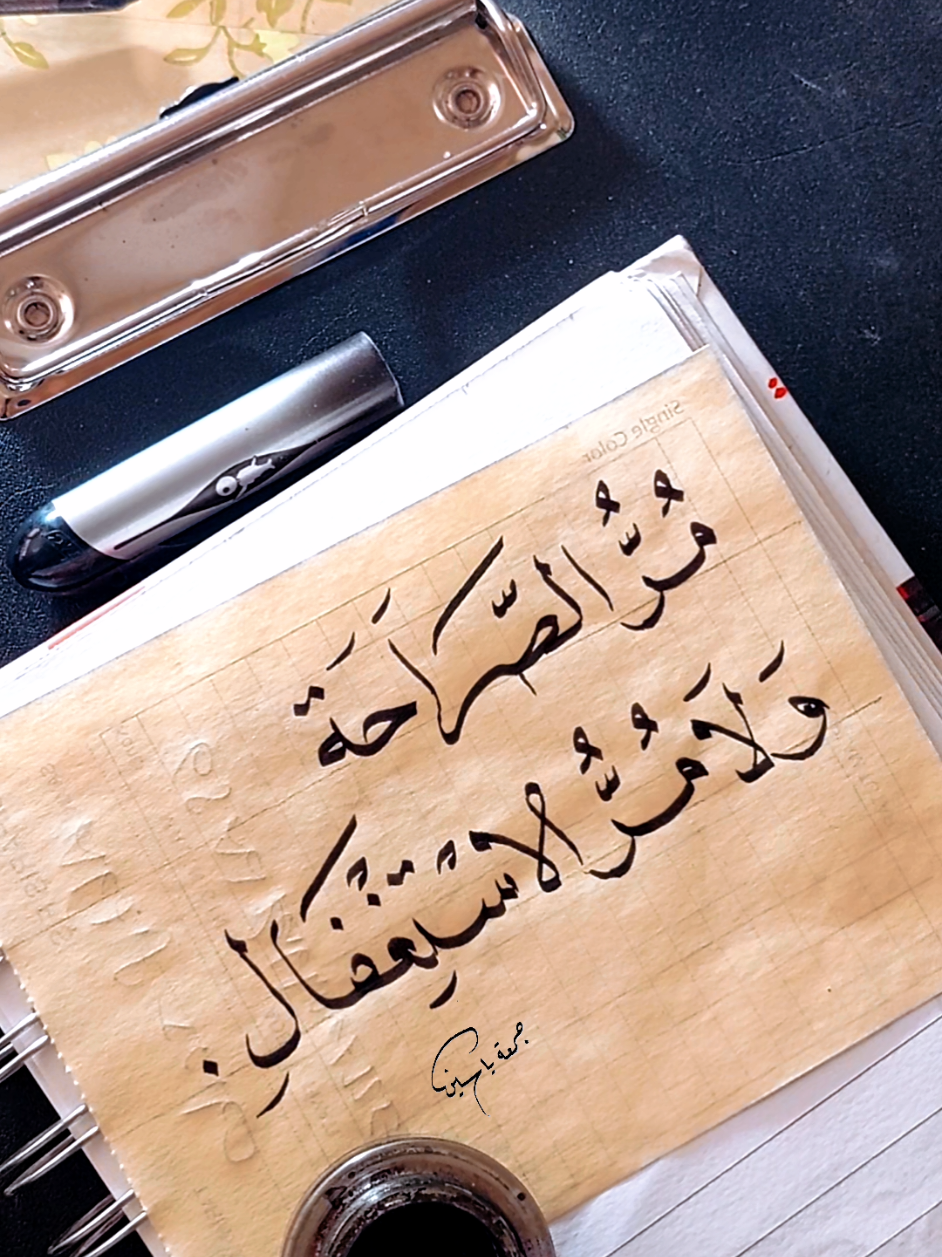 Single Color
مُرُّ الصَّرَاحَةَ
وَلَا مُرُّ الاسْتِغْفَالِ.
جمعة ياسين